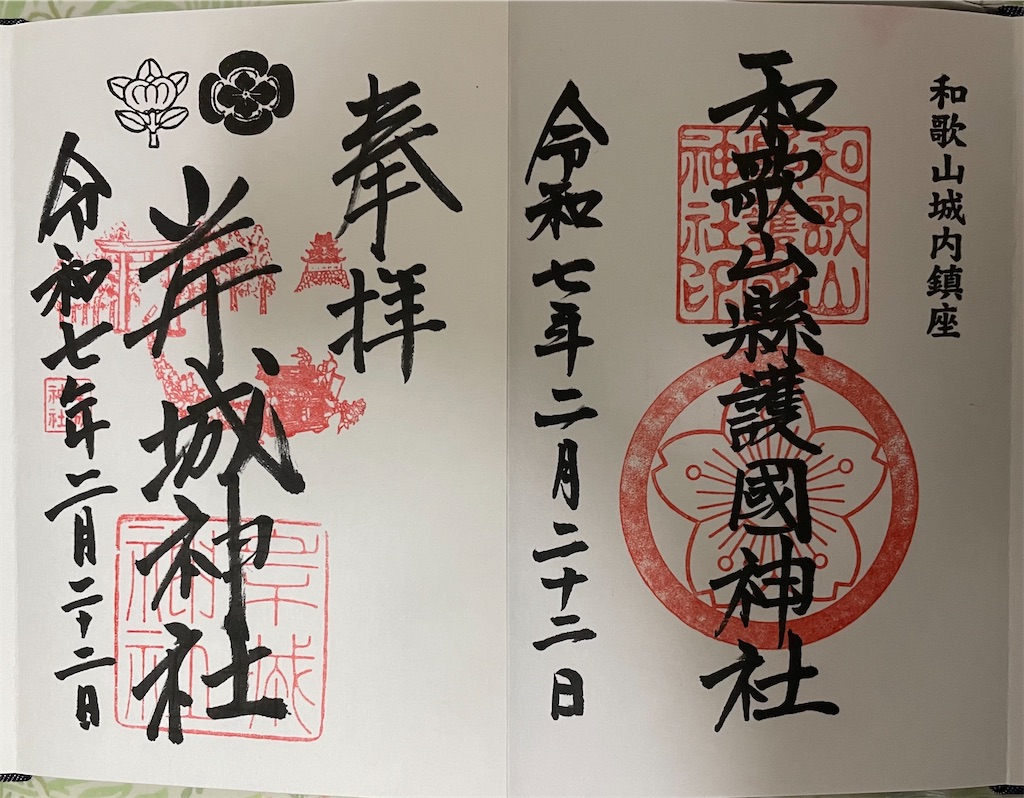 和歌山城内鎮座
和歌山縣護國神社
和歌山
縣護國
神社印
令和七年二月二十二日
奉拝
岸城神社
岸城
神社
令和七年二月二十二日